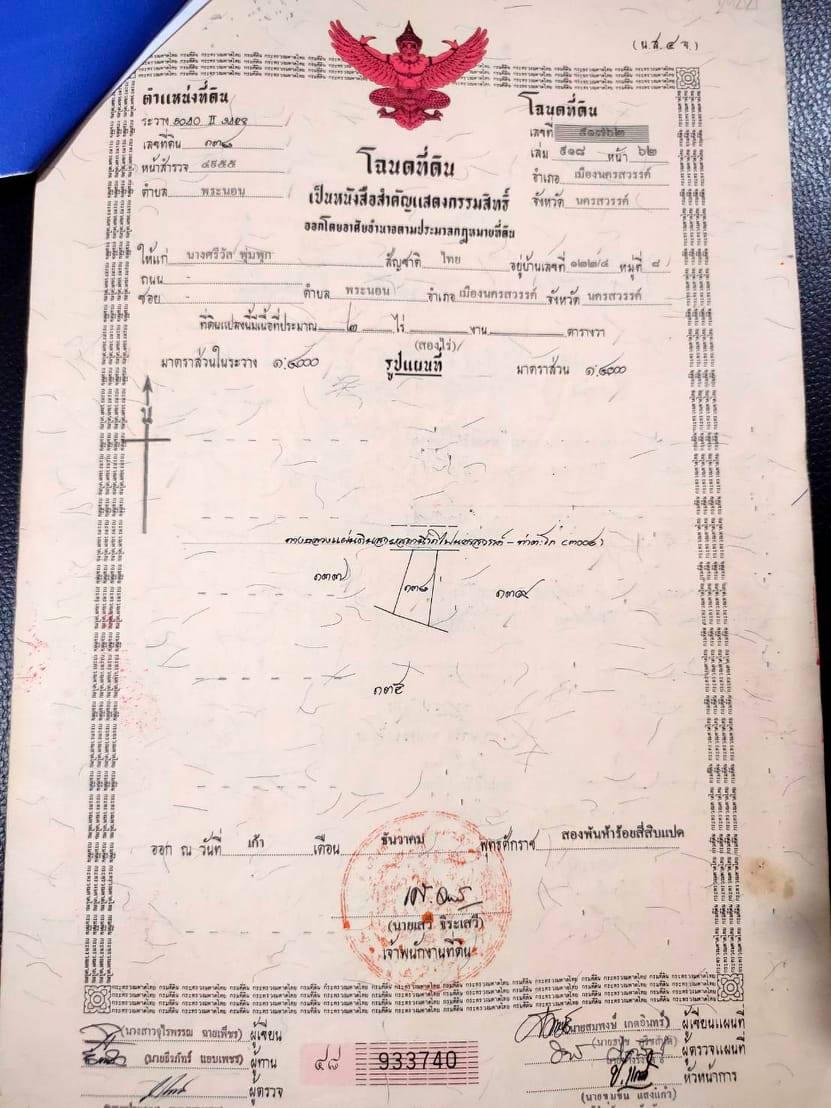 (น.ส.๔ จ.)
ตำแหน่งที่ดิน
ระวาง ๕๐๔๐ II
เลขที่ดิน ๑๓๘
หน้าสำรวจ ๔๙๕๕
ตำบล พระนอน
โฉนดที่ดิน
เลขที่ ๕๑๗๖๒
เล่ม ๕๑๘ หน้า ๖๒
อำเภอ เมืองนครสวรรค์
จังหวัด นครสวรรค์
โฉนดที่ดิน
เป็นหนังสือสำคัญแสดงกรรมสิทธิ์
ออกโดยอาศัยอำนาจตามประมวลกฎหมายที่ดิน
ให้แก่ นางศรีวัล พุ่มพุก สัญชาติ ไทย อยู่บ้านเลขที่ ๑๒๒/๔ หมู่ที่ ๘
ถนน -
ซอย - ตำบล พระนอน อำเภอ เมืองนครสวรรค์ จังหวัด นครสวรรค์
ที่ดินแปลงนี้มีเนื้อที่ประมาณ ๒ ไร่ - งาน - ตารางวา
(สองไร่)
มาตราส่วนในระวาง ๑:๔๐๐๐ รูปแผนที่ มาตราส่วน ๑:๔๐๐๐
น
ทางหลวงแผ่นดินสายสถานีรถไฟนครสวรรค์ - ท่าตะโก (๓๐๐๔)
๑๓๗ ๑๓๘ ๑๓๙
๑๓๕
ออก ณ วันที่ เก้า เดือน ธันวาคม พุทธศักราช สองพันห้าร้อยสี่สิบแปด
(นายเสวี จิระเสวี)
เจ้าพนักงานที่ดิน
(นางสาวจุไรพรรณ ฉายเพ็ชร) ผู้เขียน
ผู้ทาน
ผู้ตรวจ
๔๘ 933740
นายสมพงษ์ เกตอินทร์) ผู้เขียนแผนที่
ผู้ตรวจแผนที่
หัวหน้าการ
(นายชุมชื่น แสงแก้ว)